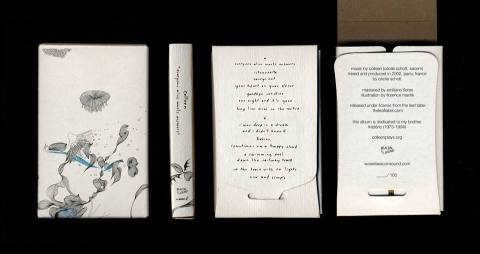 colleen
everyone alive wants answers
a
everyone alive wants answers
ritournelle
carry-cot
your heart is your street
goodbye sunshine
one night and it's gone
long live mice in the metro
b
i was deep in a dream
and i didn't know it
babies
sometimes on a happy cloud
a swimming pool
down the railway track
in the train with no lights
nice and simple
music by colleen (cécile schott, sacem)
mixed and produced in 2002, paris, france
by cécile schott
mastered by emiliano flores
illustration by florence manlik
released under license from the leaf label
theleaflabel.com
this album is dedicated to my brother
frédéric (1973-1994)
colleenplays.org
/ 100